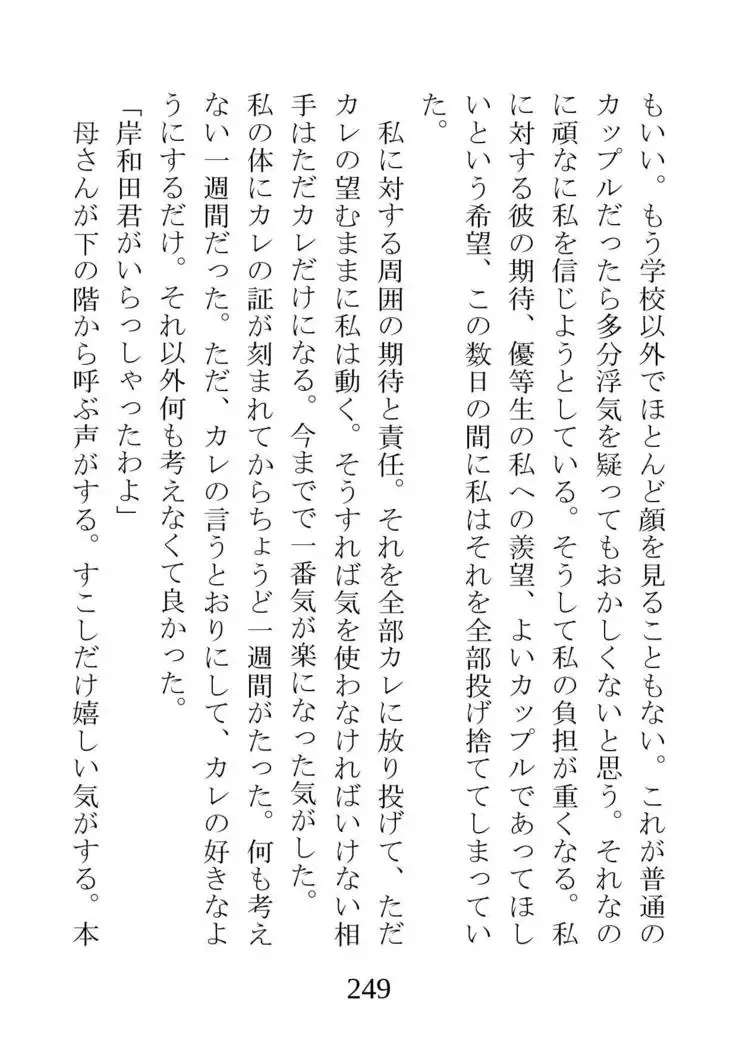 もいい。もう学校以外でほとんど顔を見ることもない。これが普通の
カップルだったら多分浮気を疑ってもおかしくないと思う。それなの
に頑なに私を信じようとしている。そうして私の負担が重くなる。私
に対する彼の期待、優等生の私への羨望、よいカップルであってほし
いという希望、この数日の間に私はそれを全部投げ捨ててしまってい
た。
私に対する周囲の期待と責任。それを全部カレに放り投げて、ただ
カレの望むままに私は動く。そうすれば気を使わなければいけない相
手はただカレだけになる。今までで一番気が楽になった気がした。
私の体にカレの証が刻まれてからちょうど一週間がたった。何も考え
ない一週間だった。ただ、カレの言うとおりにして、カレの好きなよ
うにするだけ。それ以外何も考えなくて良かった。
「岸和田君がいらっしゃったわよ」
母さんが下の階から呼ぶ声がする。すこしだけ嬉しい気がする。本
249